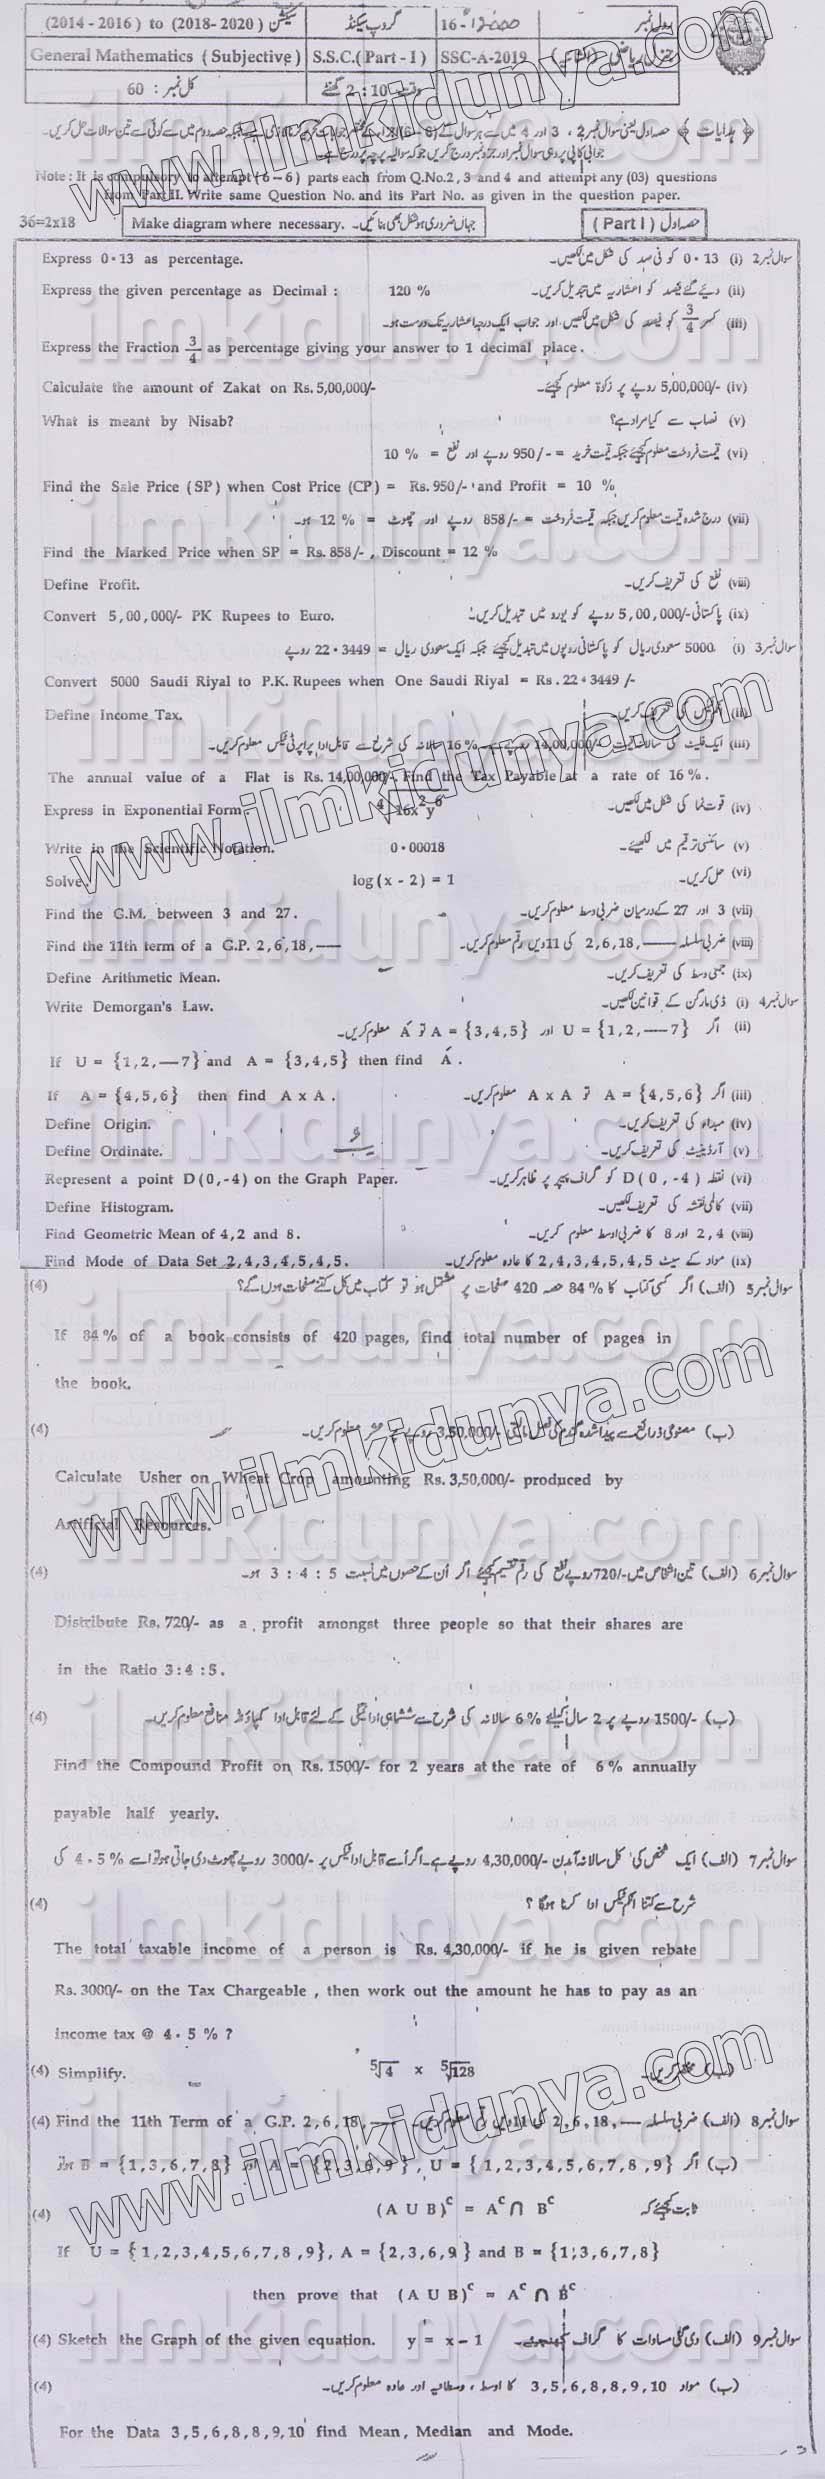 (2014 - 2016) to (2018- 2020) سیکشن گروپ سیکنڈ 16- رول نمبر
General Mathematics (Subjective) S.S.C.(Part - I) SSC-A-2019 جنرل ریاضی (انشائیہ)
کل نمبر : 60 وقت : 2:10 گھنٹے
Note : It is compulsory to attempt (6 – 6) parts each from Q.No.2 , 3 and 4 and attempt any (03) questions
from Part II. Write same Question No. and its Part No. as given in the question paper.
36=2x18 Make diagram where necessary. جہاں ضروری ہو شکل بھی بنائیں۔ (Part I) حصہ اول
Express 0·13 as percentage. سوال نمبر 2 (i) 0·13 کو فی صد کی شکل میں لکھیں۔
Express the given percentage as Decimal : 120 % (ii) دیئے گئے فیصد کو اعشاریہ میں تبدیل کریں۔
(iii) کسر 3/4 کو فیصد کی شکل میں لکھیں اور جواب ایک درجہ اعشاریہ تک درست ہو۔
Express the Fraction 3/4 as percentage giving your answer to 1 decimal place .
Calculate the amount of Zakat on Rs. 5,00,000/- (iv) 5,00,000/- روپے پر زکوٰۃ معلوم کیجئے۔
What is meant by Nisab? (v) نصاب سے کیا مراد ہے؟
(vi) قیمت فروخت معلوم کیجئے جبکہ قیمت خرید = 950/- روپے اور نفع = 10 %
Find the Sale Price (SP) when Cost Price (CP) = Rs. 950/- and Profit = 10 %
(vii) درج شدہ قیمت معلوم کریں جبکہ قیمت فروخت = 858/- روپے اور چھوٹ = 12 % ہو۔
Find the Marked Price when SP = Rs. 858/- , Discount = 12 %
Define Profit. (viii) نفع کی تعریف کریں۔
Convert 5,00,000/- PK Rupees to Euro. (ix) پاکستانی 5,00,000/- روپے کو یورو میں تبدیل کریں۔
سوال نمبر 3 (i) 5000 سعودی ریال کو پاکستانی روپوں میں تبدیل کیجئے جبکہ ایک سعودی ریال = 22·3449 روپے
Convert 5000 Saudi Riyal to P.K. Rupees when One Saudi Riyal = Rs. 22·3449 /-
Define Income Tax. (ii) انکم ٹیکس کی تعریف کریں۔
(iii) ایک فلیٹ کی سالانہ مالیت 14,00,000/- روپے ہے 16% سالانہ کی شرح سے قابل ادا پراپرٹی ٹیکس معلوم کریں۔
The annual value of a Flat is Rs. 14,00,000/-. Find the Tax Payable at a rate of 16 % .
Express in Exponential Form . ⁴√16x²y⁶ (iv) قوت نما کی شکل میں لکھیں۔
Write in the Scientific Notation. 0·00018 (v) سائنسی ترقیم میں لکھیئے۔
Solve. log(x - 2) = 1 (vi) حل کریں۔
Find the G.M. between 3 and 27 . (vii) 3 اور 27 کے درمیان ضربی وسط معلوم کریں۔
Find the 11th term of a G.P. 2,6,18,---- (viii) ضربی سلسلہ ---- 2,6,18, کی 11 ویں رقم معلوم کریں۔
Define Arithmetic Mean. (ix) جمعی وسط کی تعریف کریں۔
Write Demorgan's Law. سوال نمبر 4 (i) ڈی مارگن کے قوانین لکھیں۔
(ii) اگر U = {1,2,----7} اور A = {3,4,5} تو A´ معلوم کریں۔
If U = {1,2,----7} and A = {3,4,5} then find A´ .
If A = {4,5,6} then find A x A . (iii) اگر A = {4,5,6} تو A x A معلوم کریں۔
Define Origin. (iv) مبداء کی تعریف کریں۔
Define Ordinate. (v) آرڈینیٹ کی تعریف کریں۔
Represent a point D(0,-4) on the Graph Paper. (vi) نقطہ D(0,-4) کو گراف پیپر پر ظاہر کریں۔
Define Histogram. (vii) کالمی نقشہ کی تعریف لکھیں۔
Find Geometric Mean of 4,2 and 8. (viii) 2,4 اور 8 کا ضربی اوسط معلوم کریں۔
Find Mode of Data Set 2,4,3,4,5,4,5. (ix) مواد کے سیٹ 2,4,3,4,5,4,5 کا عادہ معلوم کریں۔
(4) سوال نمبر 5 (الف) اگر کسی کتاب کا 84 % حصہ 420 صفحات پر مشتمل ہو تو کتاب میں کل کتنے صفحات ہوں گے؟
If 84% of a book consists of 420 pages, find total number of pages in
the book.
(4) (ب) مصنوعی ذرائع سے پیدا شدہ گندم کی فصل مالیتی 3,50,000/- روپے پر عشر معلوم کریں۔
Calculate Usher on Wheat Crop amounting Rs. 3,50,000/- produced by
Artificial Resources.
(4) سوال نمبر 6 (الف) تین اشخاص میں 720/- روپے نفع کی رقم تقسیم کیجئے اگر اُن کے حصوں میں نسبت 3 : 4 : 5 ہو۔
Distribute Rs. 720/- as a profit amongst three people so that their shares are
in the Ratio 3:4:5.
(4) (ب) 1500/- روپے پر 2 سال کیلئے 6 % سالانہ کی شرح سے ششماہی ادائیگی کے لئے قابل ادا کمپاؤنڈ منافع معلوم کریں۔
Find the Compound Profit on Rs. 1500/- for 2 years at the rate of 6 % annually
payable half yearly.
سوال نمبر 7 (الف) ایک شخص کی کل سالانہ آمدن 4,30,000/- روپے ہے۔ اگر اُسے قابل ادا ٹیکس پر 3000/- روپے چھوٹ دی جاتی ہو تو اسے 4·5 % کی
(4) شرح سے کتنا انکم ٹیکس ادا کرنا ہوگا ؟
The total taxable income of a person is Rs. 4,30,000/- if he is given rebate
Rs. 3000/- on the Tax Chargeable , then work out the amount he has to pay as an
income tax @ 4·5 % ?
(4) Simplify. ⁵√4 x ⁵√128 (ب) مختصر کریں۔
(4) Find the 11th Term of a G.P. 2,6,18,---- سوال نمبر 8 (الف) ضربی سلسلہ ---- 2,6,18, کی 11 ویں رقم معلوم کریں۔
(ب) اگر U = {1,2,3,4,5,6,7,8,9} , A = {2,3,6,9} اور B = {1,3,6,7,8} ہو تو
(4) (A U B)ᶜ = Aᶜ ∩ Bᶜ ثابت کیجئے کہ
If U = {1,2,3,4,5,6,7,8,9}, A = {2,3,6,9} and B = {1,3,6,7,8}
then prove that (A U B)ᶜ = Aᶜ ∩ Bᶜ
(4) Sketch the Graph of the given equation. y = x – 1 سوال نمبر 9 (الف) دی گئی مساوات کا گراف کھینچئے۔
(4) (ب) مواد 3,5,6,8,8,9,10 کا اوسط ، وسطانیہ اور عادہ معلوم کریں۔
For the Data 3,5,6,8,8,9,10 find Mean, Median and Mode.
www.ilmkidunya.com